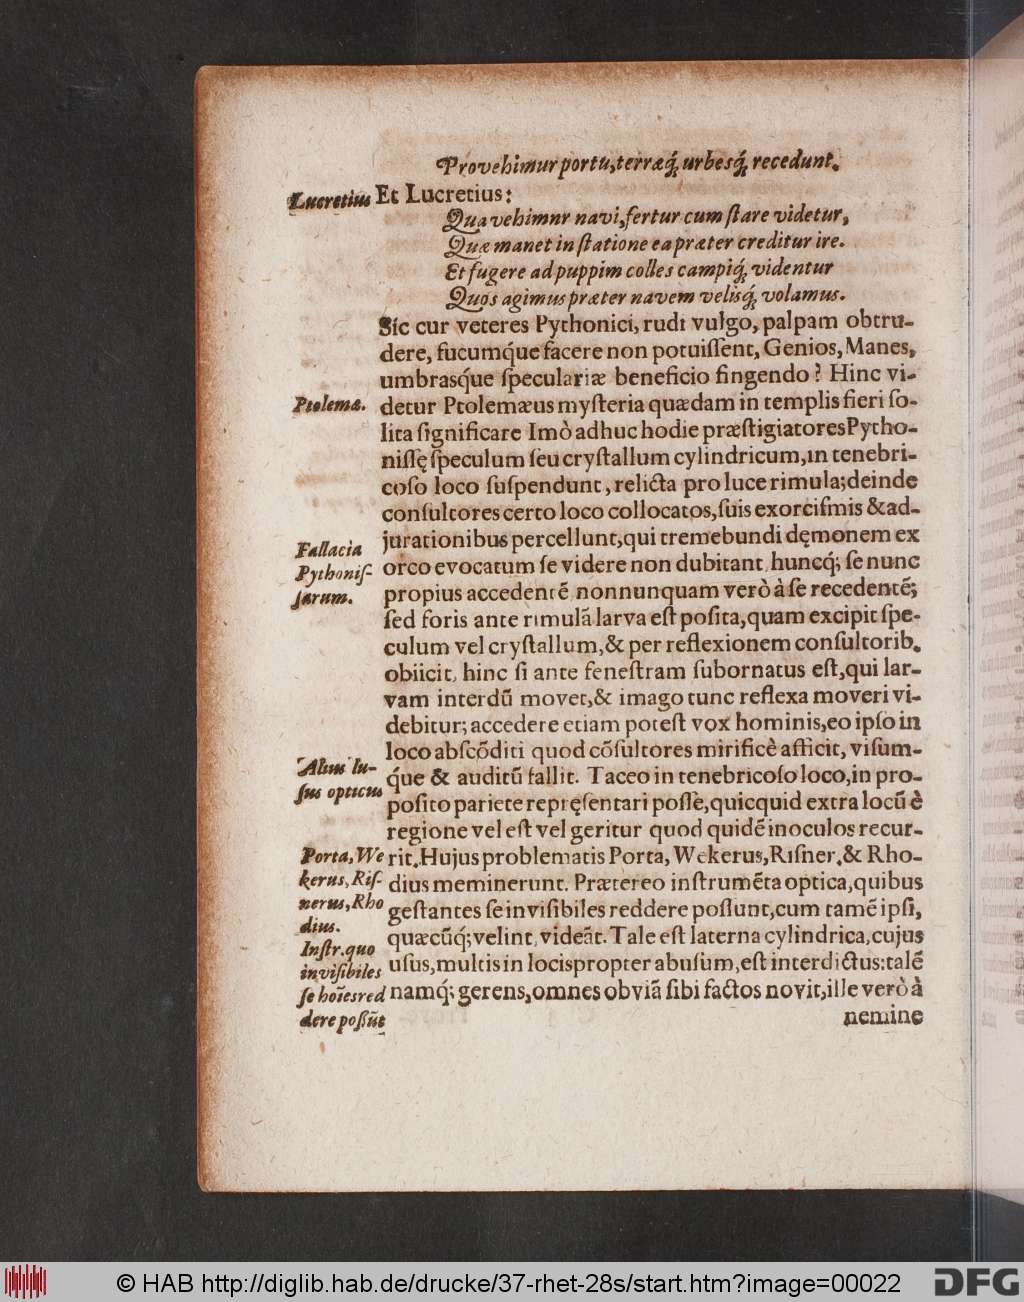 Provehimur portu, terræq́; urbesq́; recedunt.
Lucretius Et Lucretius:
Qua vehimnr navi, fertur cum ſtare videtur,
Quæ manet in ſtatione ea præter creditur ire.
Et fugere ad puppim colles campiq́; videntur
Quos agimus præter navem velisq́; volamus.
Sic cur veteres Pythonici, rudi vulgo, palpam obtru-
dere, fucumq́ue facere non potuiſſent, Genios, Manes,
umbrasq́ue ſpeculariæ beneficio fingendo? Hinc vi-
Ptolemæ. detur Ptolemæus myſteria quædam in templis fieri ſo-
lita ſignificare Imò adhuc hodie præſtigiatores Pytho-
niſſę ſpeculum ſeu cryſtallum cylindricum, in tenebri-
coſo loco ſuſpendunt, relicta pro luce rimula; deinde
conſultores certo loco collocatos, ſuis exorciſmis & ad-
Fallacia jurationibus percellunt, qui tremebundi dęmonem ex
Pythoniſ- orco evocatum ſe videre non dubitant, huncq́; ſe nunc
ſarum. propius accedentē nonnunquam verò à ſe recedentē;
ſed foris ante rimulā larva eſt poſita, quam excipit ſpe-
culum vel cryſtallum, & per reflexionem conſultorib.
obiicit, hinc ſi ante feneſtram ſubornatus eſt, qui lar-
vam interdū movet, & imago tunc reflexa moveri vi-
debitur; accedere etiam poteſt vox hominis, eo ipſo in
loco abſcōditi quod cōſultores mirificè afficit, viſum-
Alius lu- q́ue & auditū fallit. Taceo in tenebricoſo loco, in pro-
ſus opticus poſito pariete repręſentari poſſe, quicquid extra locū è
regione vel eſt vel geritur quod quidē in oculos recur-
Porta, We rit. Hujus problematis Porta, Wekerus, Riſner. & Rho-
kerus, Riſ- dius meminerunt. Prætereo inſtrumēta optica, quibus
nerus, Rho geſtantes ſe inviſibiles reddere poſſunt, cum tamē ipſi,
dius. quæcūq́; velint, videāt. Tale eſt laterna cylindrica, cujus
Inſtr. quo uſus, multis in locis propter abuſum, eſt interdictus: talē
inviſibiles namq́; gerens, omnes obviā ſibi factos novit, ille verò à
ſe hoīes red
dere poſſūt nemine
© HAB http://diglib.hab.de/drucke/37-rhet-28s/start.htm?image=00022 DFG